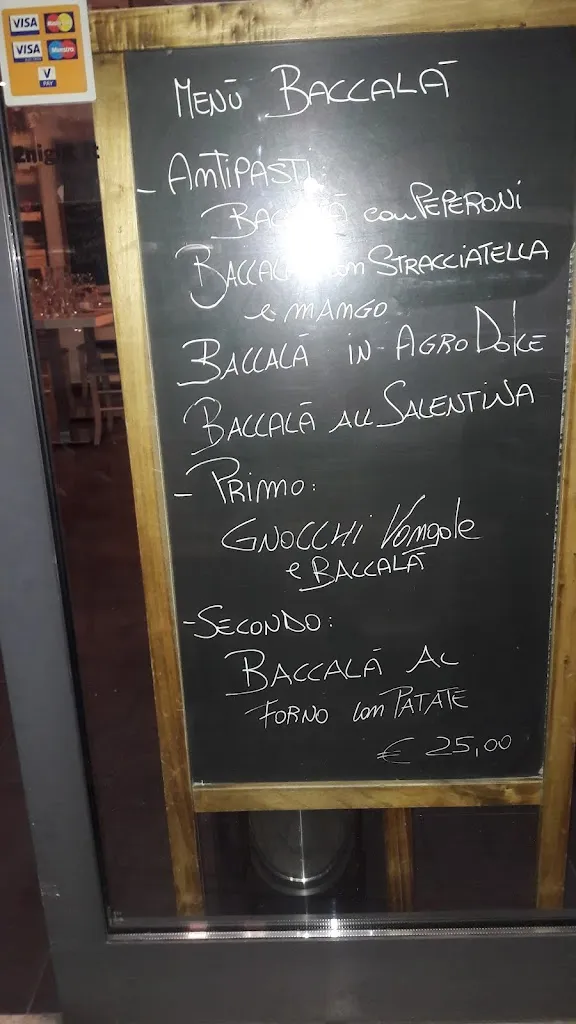 VISA
VISA Maestro
V PAY
MENÙ BACCALÀ
- ANTIPASTI:
BACCALÀ con PEPERONI
BACCALÀ con STRACCIATELLA
e MANGO
BACCALÀ IN AGRO DOLCE
BACCALÀ ALL SALENTINA
- PRIMO:
GNOCCHI Vongole
e BACCALÀ
- SECONDO:
BACCALÀ AL
FORNO con PATATE
€ 25,00